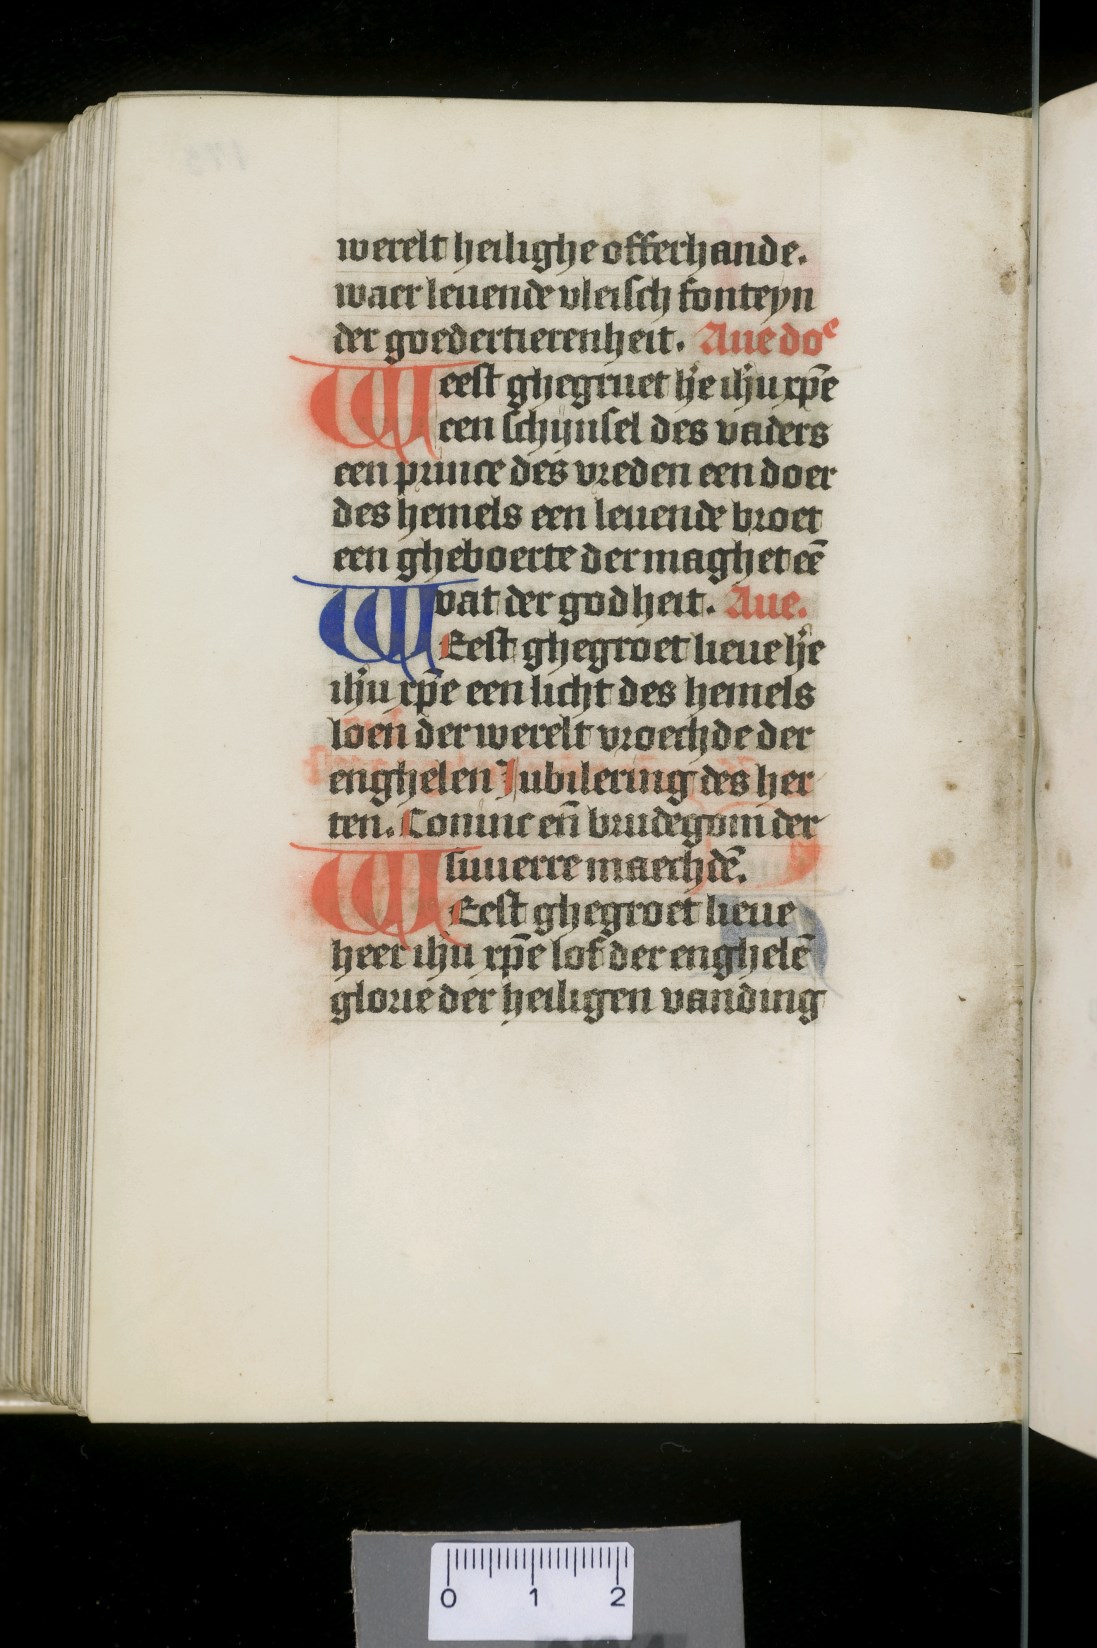 werelt heilighe offerhande.
waer leuende vleisch fonteyn
der goedertierenheit. Aue doͤ
Weest ghegruet h̄e ih̄u xp̄e
een schijnsel des vaders
een prince des vreden een doer
des hemels een leuende broet
een gheboerte der maghet eē
vat der godheit. Aue.
WEest ghegroet lieue h̄e
ih̄u xp̄e een licht des hemels
loen der werelt vroechde der
enghelen Jubilering des her
ten. Coninc en̄ brudegom der
suuerre maechdē.
WEest ghegroet lieue
heer ih̄u xp̄e lof der enghelē
glorie der heiligen vanding
0 1 2